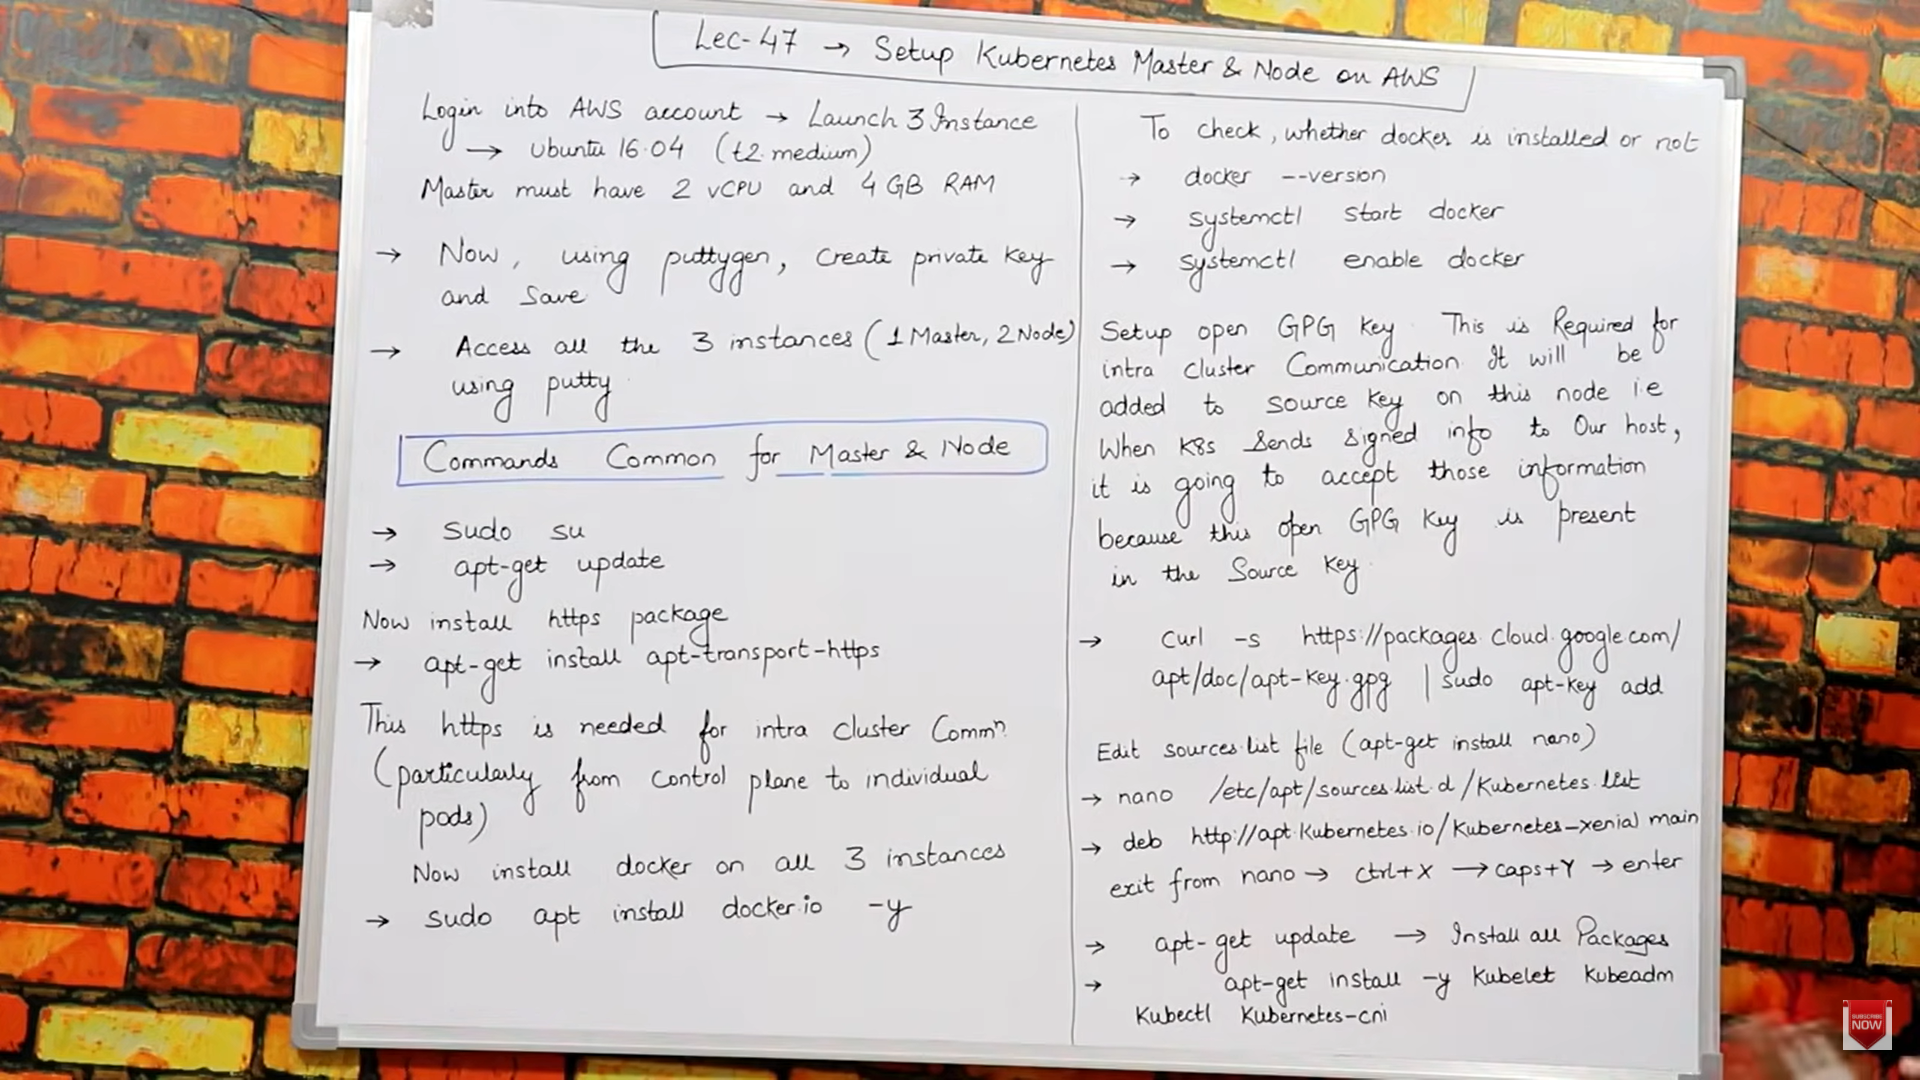 Lec-47 → Setup Kubernetes Master & Node on AWS
Login into AWS account → Launch 3 Instance
→ Ubuntu 16.04 (t2.medium)
Master must have 2 vCPU and 4 GB RAM
→ Now, using puttygen, Create private Key
and Save
→ Access all the 3 instances (1 Master, 2 Node)
using putty
Commands Common for Master & Node
→ sudo su
→ apt-get update
Now install https package
→ apt-get install apt-transport-https
This https is needed for intra cluster Commⁿ
(particularly from Control plane to individual
pods)
Now install docker on all 3 instances
→ sudo apt install docker.io -y
To check, whether docker is installed or not
→ docker --version
→ systemctl start docker
→ systemctl enable docker
Setup open GPG Key. This is Required for
intra cluster Communication. It will be
added to source key on this node i.e
When K8s Sends signed info to Our host,
it is going to accept those information
because this open GPG Key is present
in the Source Key.
→ Curl -s https://packages.cloud.google.com/
apt/doc/apt-key.gpg | sudo apt-key add
Edit sources.list file (apt-get install nano)
→ nano /etc/apt/sources.list.d/Kubernetes.list
→ deb http://apt.Kubernetes.io/Kubernetes-xenial main
exit from nano → ctrl+X → caps+Y → enter
→ apt-get update → Install all Packages
→ apt-get install -y Kubelet Kubeadm
Kubectl Kubernetes-cni
SUBSCRIBE
NOW